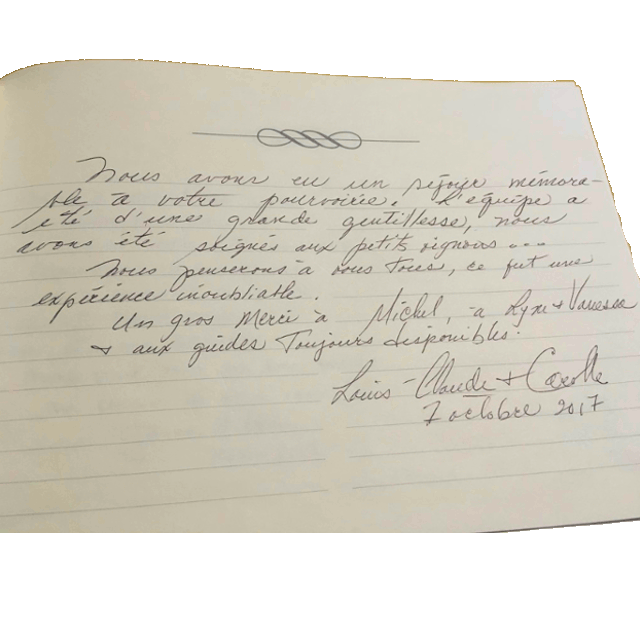 Nous avons eu un séjour mémora-
ble à votre pourvoirie. L'équipe a
été d'une grande gentillesse, nous
avons été soignés aux petits oignons...
Nous penserons à vous tous, ce fut une
expérience inoubliable.
Un gros Merci à Michel, à Lyne + Vanessa
+ aux guides Toujours disponibles.
Louis-Claude + Carolle
7 octobre 2017